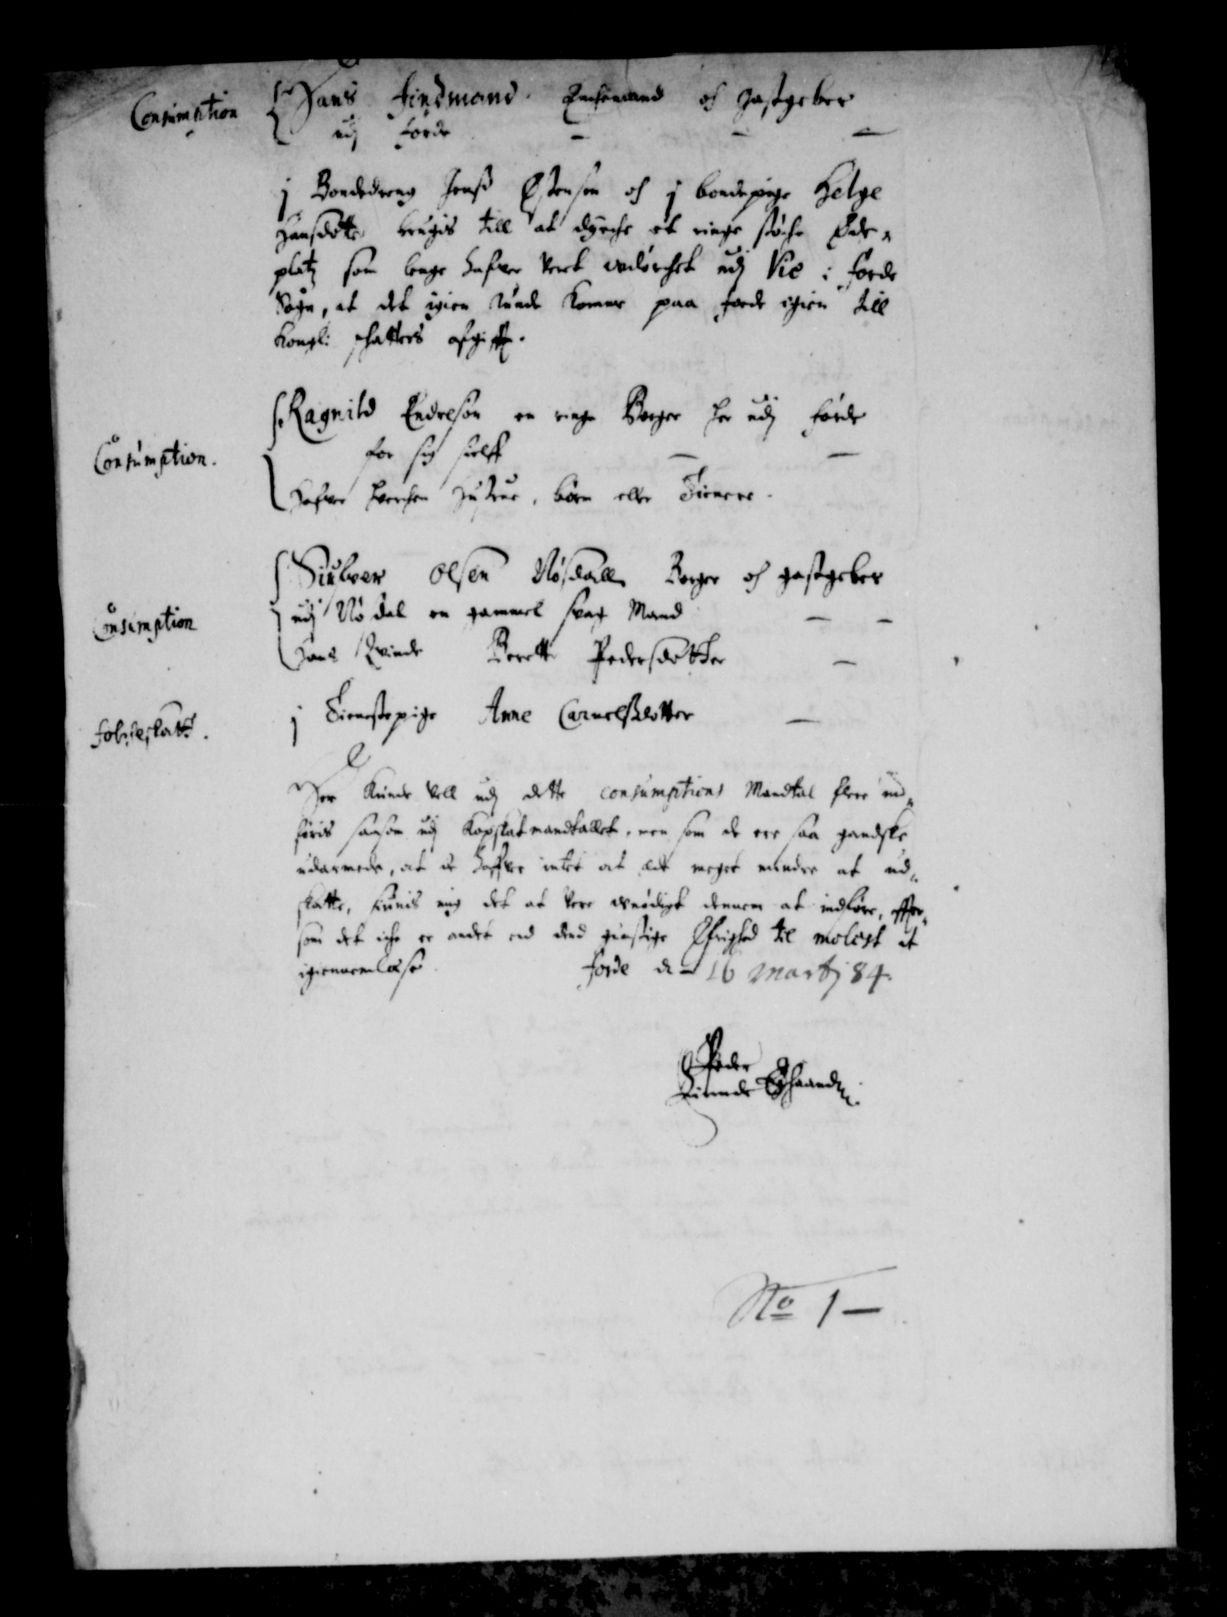 Consumption
Hans Findmand Enchemand oc gastgeber
udj Förde
j Bondedreng Jens Østensen oc j bondepige Helge
Hansdotter brugis till at dyrche et ringe støche Øde„
platz som lenge hafver verit udørchet udj Vie i förde
Sogn, at det igien kunde komme paa fode igien till
kongl: schatters afgifft.
Consumption.
Ragnild Endreson en ringe Borger her udj förde
for sig sielff
Hafver hverchen hustrue, børn eller Tienere.
Consumption
Siufver Olsen Nøsdall Borger oc gastgeber
udj Nødal en gammel svag Mand
Hans Qvinde Berette Pedersdotter
folcheskatt.
j Tienestepige Anne Carnelsdotter
Her kunde vell udj dette consumptions Mandtal flere ind„
føris saasom udj Kopskat mandtallet, men som de ere saa gandske
udarmede, at de haffver intet at æde meget mindre at ud„
skatte, siunis mig det at vere unødigt dennem at indføre, effter„
som det iche er andet end dend gunstige Øfrighed til molest at
igiennemlæse.
förde d - 16 Martj 84.
Peder
Eghaand
No 1 —